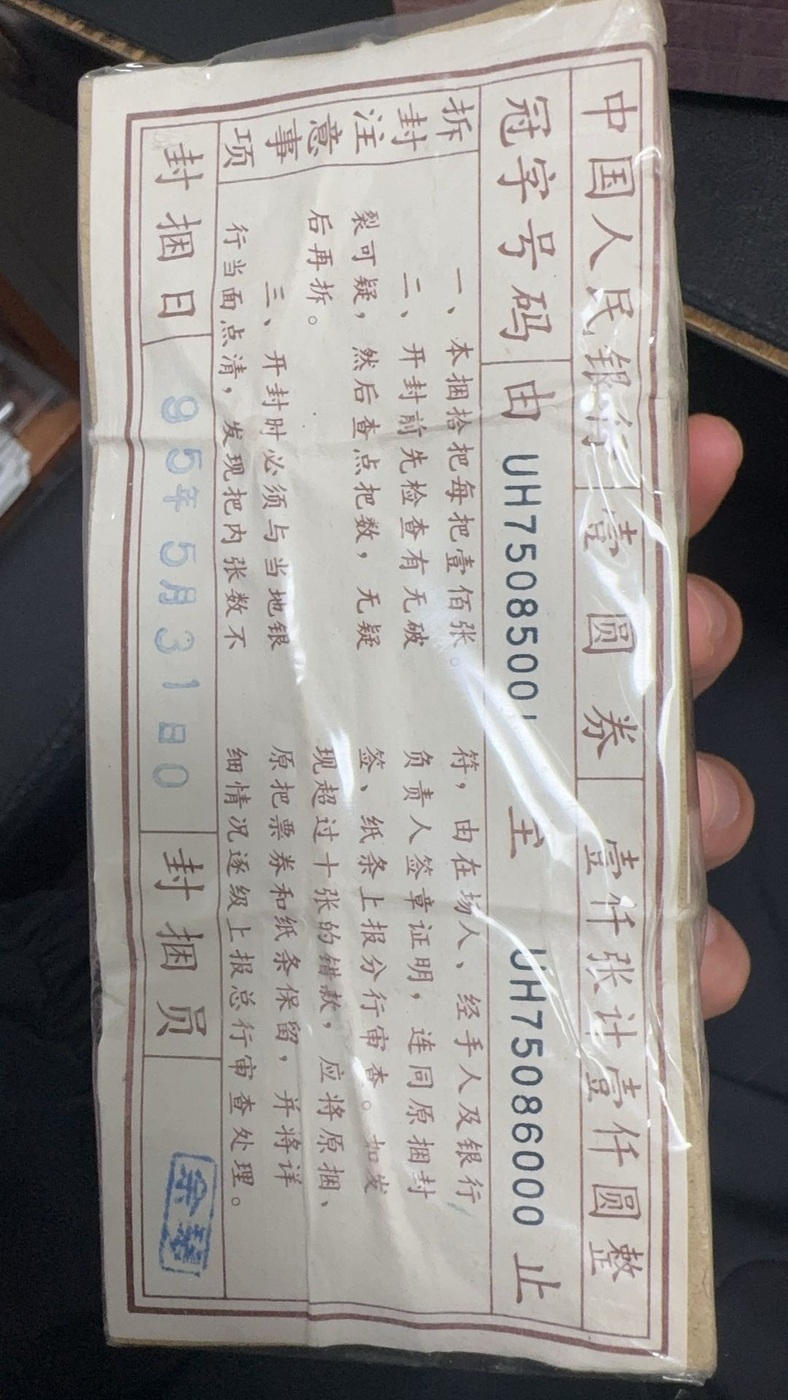 中国人民银行 壹圆券 壹仟张计壹仟圆整
冠字号码 由 UH75085001 至 UH75086000 止
拆封注意事项
一、本捆拾把每把壹佰张。
二、开封前先检查有无破
裂可疑，然后查点把数，无疑
后再拆。
三、开封时必须与当地银
行当面点清，发现把内张数不
符，由在场人、经手人及银行
负责人签章证明，连同原捆封
签、纸条上报分行审查。如发
现超过十张的错款，应将原捆、
原把票券和纸条保留，并将详
细情况逐级上报总行审查处理。
封捆日 95年5月31日0 封捆员